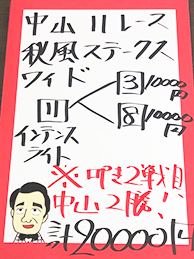 中山11レース
秋風ステークス
ワイド
3 10000円
11
8 10000円
インテンス
ライト
※叩き2戦目
中山2勝!
計20000円